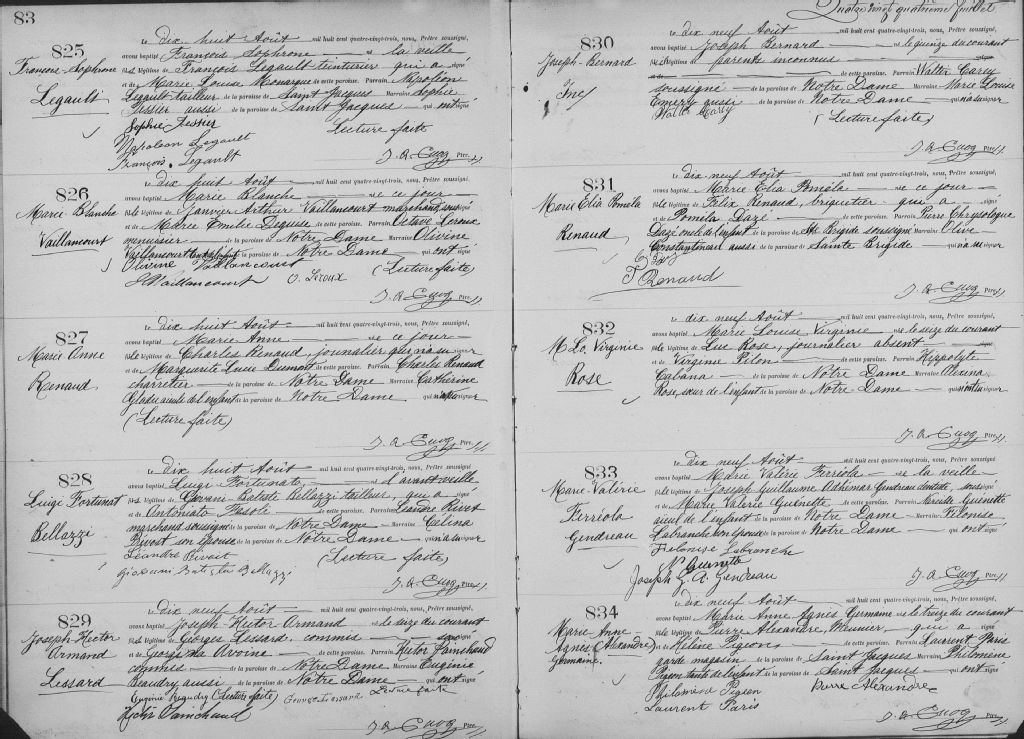 83
825
François-Sophrone
Legault
Le dix huit Août — mil huit cent quatre-vingt-trois, nous, Prêtre soussigné,
avons baptisé François Sophrone — né la veille
fils légitime de François Legault teinturier qui a signé
et de Marie Louise Monarque de cette paroisse. Parrain Napoléon
Legault tailleur de la paroisse de Saint Jacques Marraine Sophie
Tessier aussi de la paroisse de Saint Jacques — qui ont signé
Sophie Tessier Lecture faite
Napoleon Legault
François Legault
J. A. Cuoq Ptre.
826
Marie Blanche
Vaillancourt
Le dix huit Août — mil huit cent quatre-vingt-trois, nous, Prêtre soussigné,
avons baptisé Marie Blanche — née ce jour —
fille légitime de Janvier Arthur Vaillancourt marchand, soussigné
et de Marie Emilie Deguise de cette paroisse. Parrain Octave Leroux
menuisier — de la paroisse de Notre Dame — Marraine Olivine
Vaillancourt tante de l'enfant de la paroisse de Notre Dame — qui ont signé
Olivine Vaillancourt (Lecture faite)
J A Vaillancourt O. Leroux
J. A. Cuoq Ptre.
827
Marie Anne
Renaud
Le dix huit Août — mil huit cent quatre-vingt-trois, nous, Prêtre soussigné,
avons baptisé Marie Anne — née ce jour —
fille légitime de Charles Renaud, journalier qui n'a su signer
et de Marguerite Lucie Dumont de cette paroisse. Parrain Charles Renaud
charretier — de la paroisse de Notre Dame — Marraine Catherine
aïeule de l'enfant de la paroisse de Notre Dame — qui n'a su signer
(Lecture faite)
J. A. Cuoq Ptre.
828
Luigi Fortunat
Bellazzi
Le dix huit Août — mil huit cent quatre-vingt-trois, nous, Prêtre soussigné,
avons baptisé Luigi Fortunato, — né l'avant veille
fils légitime de Giovani Batiste Bellazzi tailleur, qui a signé
et de Antoniato Fasole — de cette paroisse. Parrain Léandre Rivet
marchand soussigné de la paroisse de Notre Dame — Marraine Célina
Rivest son épouse de la paroisse de Notre Dame — qui n'a su signer
Léandre Rivait (Lecture faite)
Giovani Batista Bellazzi
J. A. Cuoq Ptre.
829
Joseph-Hector
Armand
Lessard
Le dix neuf Août — mil huit cent quatre-vingt-trois, nous, Prêtre soussigné,
avons baptisé Joseph Hector Armand né le seize du courant
fils légitime de Georges Lessard, commis — signé
et de Georgina Avoine — de cette paroisse. Parrain Hector Painchaud
commis — de la paroisse de Notre Dame — Marraine Eugénie
Beaudry aussi — de la paroisse de Notre Dame — qui ont signé
Eugénie Beaudry (Lecture faite) George Lessard Lecture faite
Hector Painchaud
J. A. Cuoq Ptre.
Quatre vingt quatrième feuillet
830
Joseph-Bernard
Inc.
Le dix neuf Août — mil huit cent quatre-vingt-trois, nous, Prêtre soussigné,
avons baptisé Joseph Bernard — né le quinze du courant
fils de parents inconnus — signé
et de — de cette paroisse. Parrain Walter Carey
soussigné — de la paroisse de Notre Dame Marraine Marie Louise
Emery aussi de la paroisse de Notre Dame — qui n'a su signer
Walter Carey (Lecture faite)
J. A. Cuoq Ptre.
831
Marie Elia Poméla
Renaud
Le dix neuf Août — mil huit cent quatre-vingt-trois, nous, Prêtre soussigné,
avons baptisé Marie Elia Poméla — née ce jour —
fille légitime de Félix Renaud, briquetier qui a — signé
et de Poméla Dazé — de cette paroisse. Parrain Pierre Chrysologue
Dazé oncle de l'enfant de la paroisse de Ste Brigide soussigné Marraine Olive
Constantineau aussi de la paroisse de Sainte Brigide — qui n'a su signer
F Renaud
J. A. Cuoq Ptre.
832
M. Lo. Virginie
Rose
Le dix neuf Août — mil huit cent quatre-vingt-trois, nous, Prêtre soussigné,
avons baptisé Marie Louise Virginie née le seize du courant
fille légitime de Luc Rose, journalier absent — signé
et de Virginie Pilon — de cette paroisse. Parrain Hippolyte
Cabana — de la paroisse de Notre Dame Marraine Alexina
Rose, sœur de l'enfant de la paroisse de Notre Dame — qui n'ont su signer
J. A. Cuoq Ptre.
833
Marie-Valérie
Ferréola
Gendreau
Le dix neuf Août — mil huit cent quatre-vingt-trois, nous, Prêtre soussigné,
avons baptisé Marie Valérie Ferréola — née la veille —
fille légitime de Joseph Guillaume Adhémar Gendreau dentiste, soussigné
et de Marie Valérie Guénette — de cette paroisse. Parrain Guénette
aïeul de l'enfant de la paroisse de Notre Dame — Marraine Félonise
Labranche son épouse de la paroisse de Notre Dame — qui ont signé
Felonise Labranche
N. Guenette
Joseph G. A. Gendreau
J. A. Cuoq Ptre.
834
Marie Anne-
Agnès (Alexandre)
Germaine,
Le dix neuf Août — mil huit cent quatre-vingt-trois, nous, Prêtre soussigné,
avons baptisé Marie Anne Agnès Germaine née le treize du courant
fille légitime de Pierre Alexandre, Meunier, — qui a signé
et de Hélène Pigeon — de cette paroisse. Parrain Laurent Paris
garde magasin — de la paroisse de Saint Jacques Marraine Philomène
Pigeon tante de l'enfant de la paroisse de Saint Jacques — qui ont signé
Philomène Pigeon Pierre Alexandre
Laurent Paris
J. A. Cuoq Ptre.